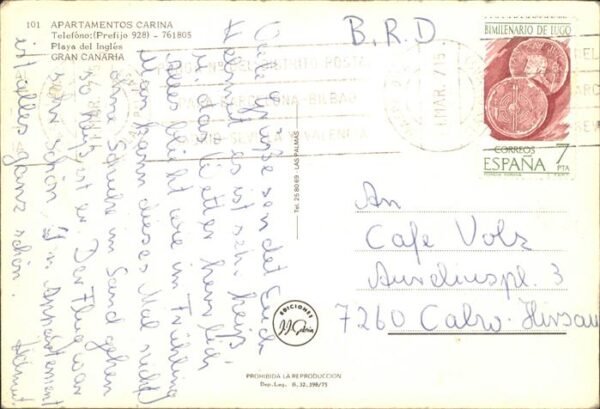 101 APARTAMENTOS CARINA
Teléfono:(Prefijo 928) - 761805
Playa del Inglés
GRAN CANARIA
B.R.D
BIMILENARIO DE LUGO
CORREOS
ESPAÑA 7
PTA
1 MAR. 7
BARCELONA-BILBAO
SEVILLA Y VALENCIA
Grüsse sendet Euch
Helmut es ist sehr heiß
das Wetter herrlich
alles blüht wie im Frühling
Man kann dieses Mal nicht
ohne Schuhe im Sand gehen
so heiß ist er. Der Flug war
sehr schön. Im Appartement
ist alles ganz schön.
Helmut
Tel. 25 80 69 - LAS PALMAS
An
Cafe Volz
Aureliuspl. 3
7260 Calw-Hirsau
EDICIONES
PROHIBIDA LA REPRODUCCION
Dep. Leg. B. 32.398/75